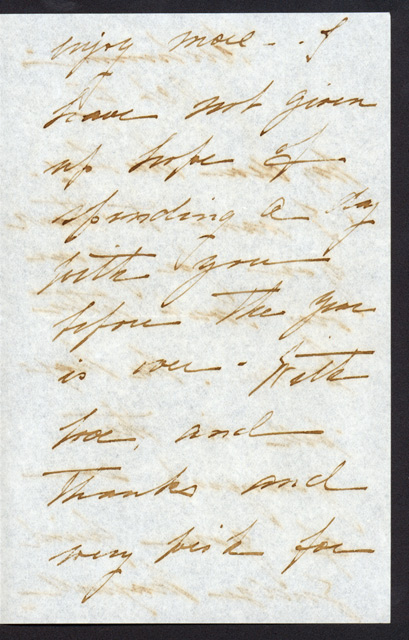 enjoy more - I
have not given
up hope of
spending a day
with you
before the year
is over - With
love, and
thanks and
every wish for